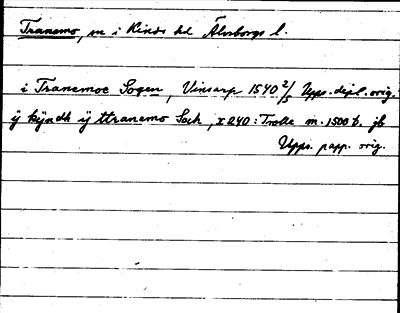 Tranemo, sn i Kinds hd Älvsborgs l.
i Tranemoe Sogen, Vinsarp 1540 2/5 Upps. dipl. orig.
ÿ kÿndh ÿ ttranemo Sock, x 240: Trolle m. 1500 t. jb
Upps. papp. orig.